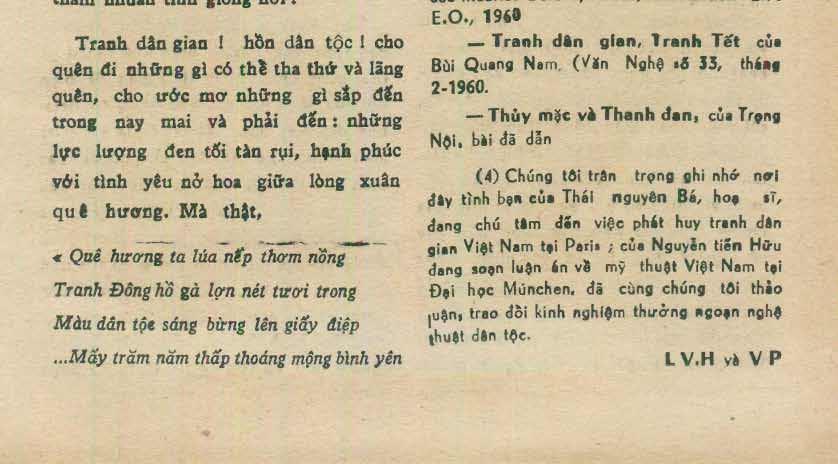 thấm nhuần tình giống nòi?
Tranh dân gian ! hồn dân tộc ! cho
quên đi những gì có thể tha thứ và lãng
quên, cho ước mơ những gì sắp đến
trong nay mai và phải đến : những
lực lượng đen tối tàn rụi, hạnh phúc
với tình yêu nở hoa giữa lòng xuân
quê hương. Mà thật,
« Quê hương ta lúa nếp thơm nồng
Tranh Đông hồ gà lợn nét tươi trong
Màu dân tộc sáng bừng lên giấy điệp
...Mấy trăm năm thấp thoáng mộng bình yên
E.O., 1960
— Tranh dân gian, Tranh Tết của
Bùi Quang Nam, (Văn Nghệ số 33, tháng
2-1960.
— Thủy mặc và Thanh đan, của Trọng
Nội, bài đã dẫn
(4) Chúng tôi trân trọng ghi nhớ nơi
đây tình bạn của Thái nguyên Bá, hoạ sĩ,
đang chú tâm đến việc phát huy tranh dân
gian Việt Nam tại Paris ; của Nguyễn tiến Hữu
đang soạn luận án về mỹ thuật Việt Nam tại
Đại học Múnchen, đã cùng chúng tôi thảo
luận, trao đổi kinh nghiệm thưởng ngoạn nghệ
thuật dân tộc.
L V.H và V P